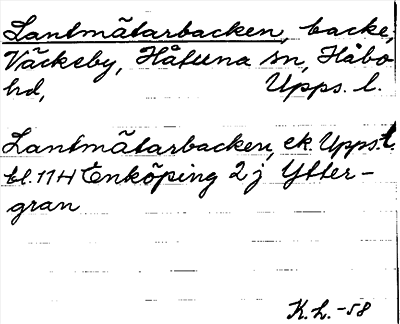 Lantmätarbacken, backe,
Väckeby, Håtuna sn, Håbo
hd, Upps. l.
Lantmätarbacken, ek. Upps. l.
bl. 114 Enköping 2 j Ytter-
gran
K. L. -58